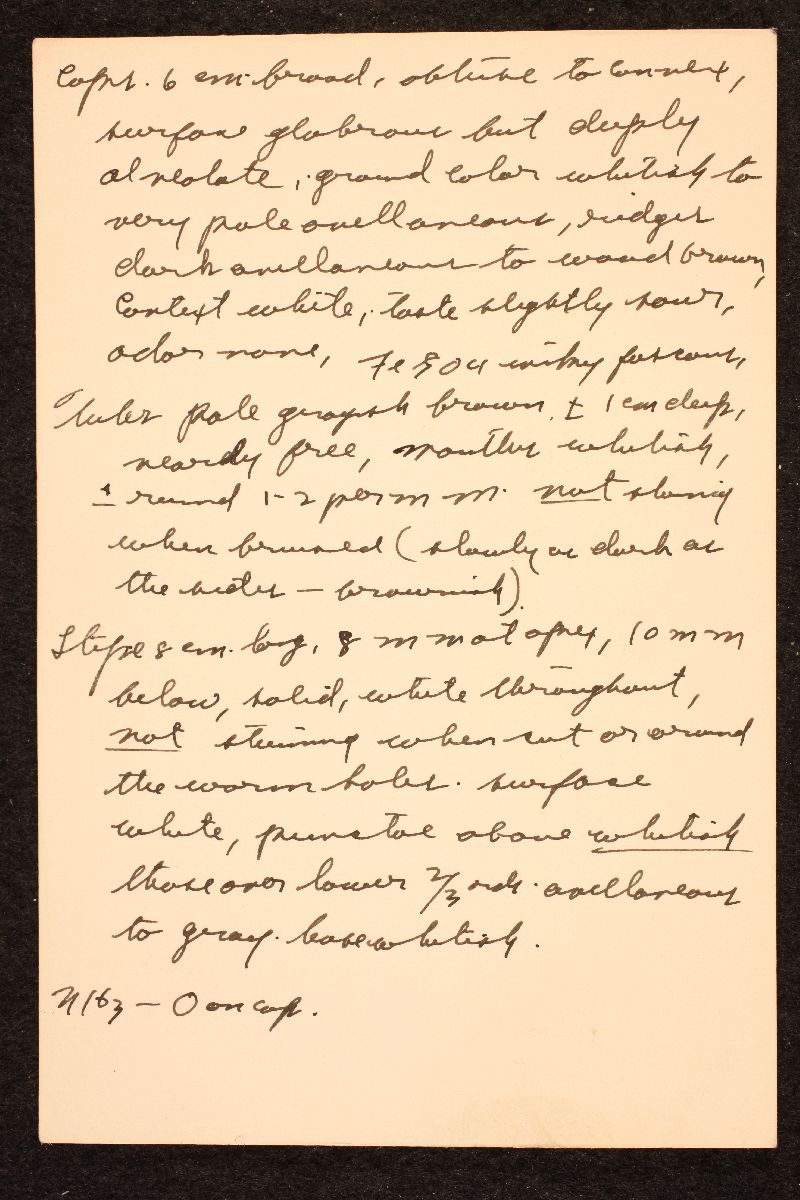 Caps. 6 cm. broad, obtuse to convex,
surface glabrous but deeply
alveolate, ground color whitish to
very pale avellaneous, ridges
dark avellaneous to wood brown,
Context white, taste slightly sour,
odor none, FeSO4 fuscous,
Tubes pale grayish brown, ± 1 cm deep,
nearly free, mouths whitish,
± round 1-2 per mm. not staining
when bruised (slowly as dark as
the sides – brownish).
Stipe 8 cm. long, 8 mm at apex, 10 mm
below, solid, white throughout,
not staining when cut or around
the worm holes. surface
white, punctae above whitish
those over lower 2/3rds. avellaneous
to gray. base whitish.
– O on cap.